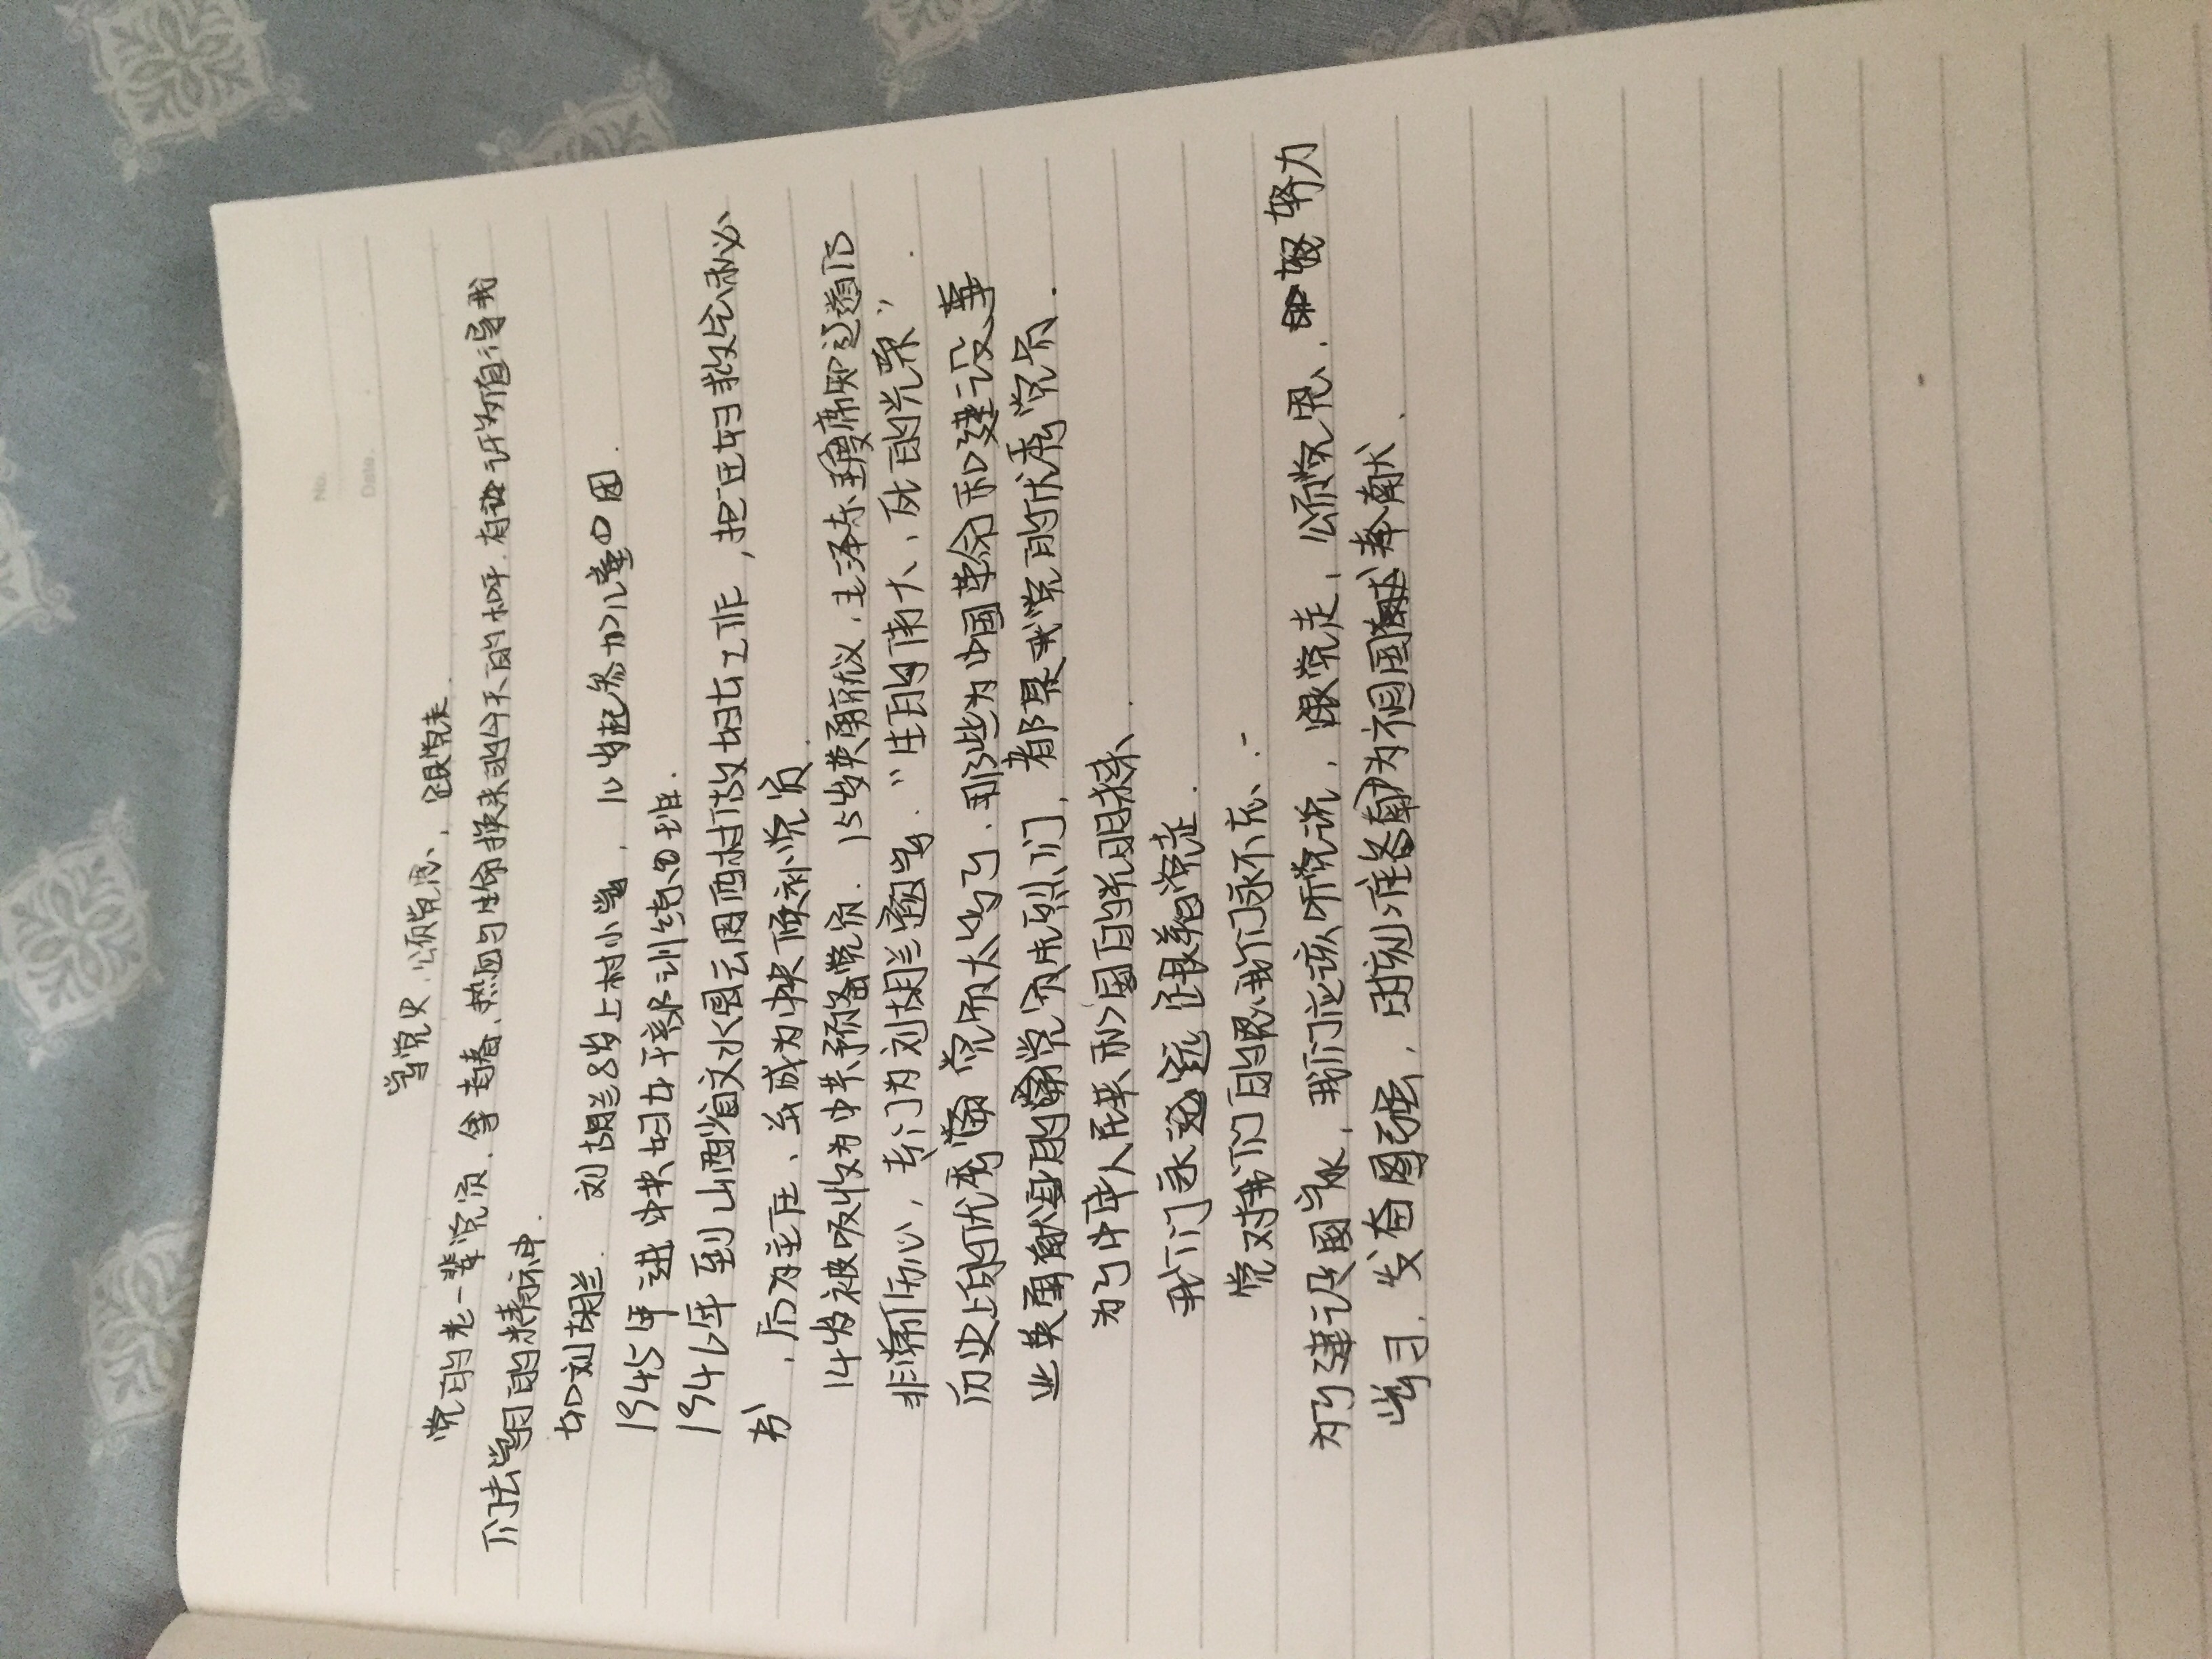 No.
Date.
学党史、颂党恩、跟党走.
党的老一辈党员,拿青春、热血与生命换来的今天的和平.有许多值得我
们去学习的精神.
如刘胡兰.  刘胡兰8岁上村小学,10岁起参加儿童团.
1945年进中共妇女干部训练班.
1946年到山西省文水县云周西村做妇女工作,担任妇救会秘
书,后为主任、并成为中共候补党员.
14岁被吸收为中共预备党员.15岁英勇就义,毛泽东主席知道后
非常伤心,专门为刘胡兰题字."生的伟大、死的光荣"
历史上的优秀党员太多了.那些为中国革命和建设事
业英勇献身的党员先烈们,都是我党的优秀党员.
为了中华人民共和国的光明未来、
我们永远跟着党走.
党对我们的恩我们永不忘、
为了建设国家,我们应该听党说,跟党走,颂党恩、努力
学习,发奋图强,时刻准备为祖国奉献.